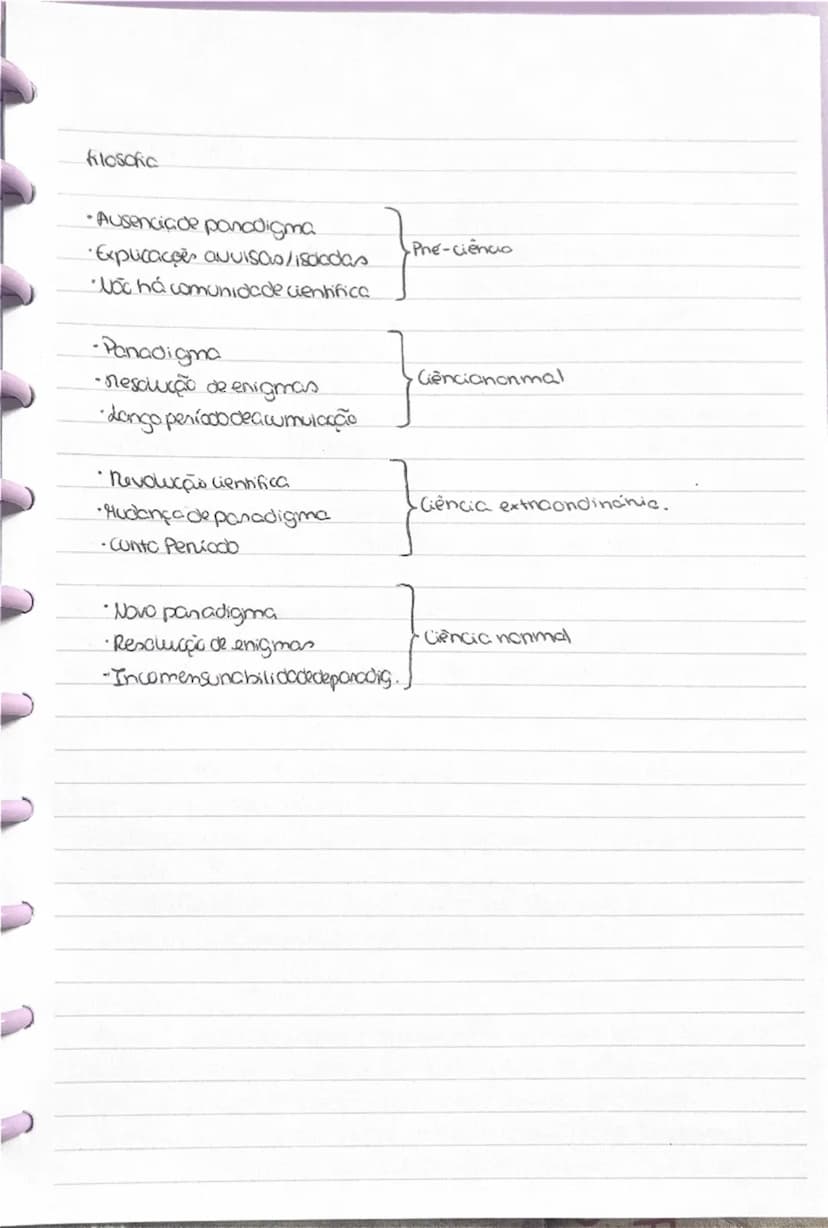 filosofia
· Ausencia de paradigma
· Explicações avulsas/isoladas
Pré-ciência
· Não há comunidade científica
· Paradigma
· resolução de enigmas
Ciência normal
· Longo período de acumulação
· Revolução científica
· Mudança de paradigma
Ciência extraordinária.
· Curto Período
· Novo paradigma
· Resolução de enigmas
Ciência normal
- Incomensurabilidade de paradig.